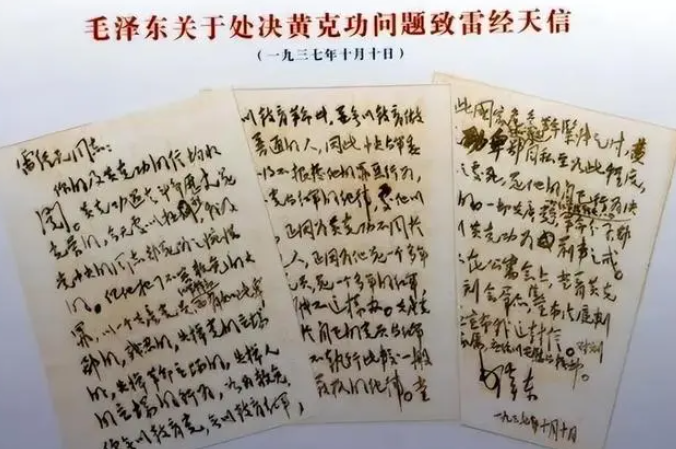 毛泽东关于处决黄克功问题致雷经天信
(一九三七年十月十日)
雷经天同志:
你的及黄克功的信均收
阅。黄克功过去斗争历史是
光荣的,今天处以极刑,我及
党中央的同志都是为之惋惜
的。但他犯了不容赦免的大
罪,以一个共产党员红军干
部而有如此卑鄙的,残忍的,失掉党的立场
的,失掉革命立场的,失掉人
的立场的行为,如为赦免,
便无以教育党,无以教育红军,
以教育革命者,并无以教育做
普通的人,因此中央与军委
得不根据他的罪恶行为,
党与红军的纪律,处他以
正因为黄克功不同于
人,正因为他是一个多年
党员,是一个多年的红军,
不这样办。共产党
于自己的党员与红军
不执行比较一般
严格的纪律。当
此国家危急革命紧张之时,黄
卑鄙 自私至如此程度,
之处死,是他的自己行为决
的。一切共产党员
以黄克功为前车之戒。
在公审会上,当着黄克
到会群众,宣布法庭判
宣布我这封信。对刘
属,应给以安慰与体恤。
毛泽东
一九三七年十月十日